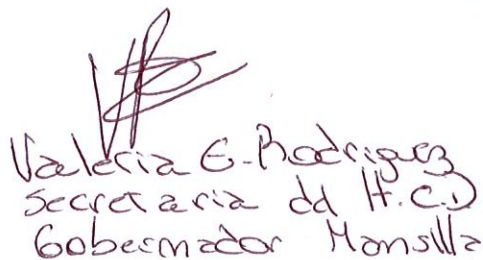 Valeria G. Rodriguez
Secretaria del H.C.D
Gobernador Mansilla